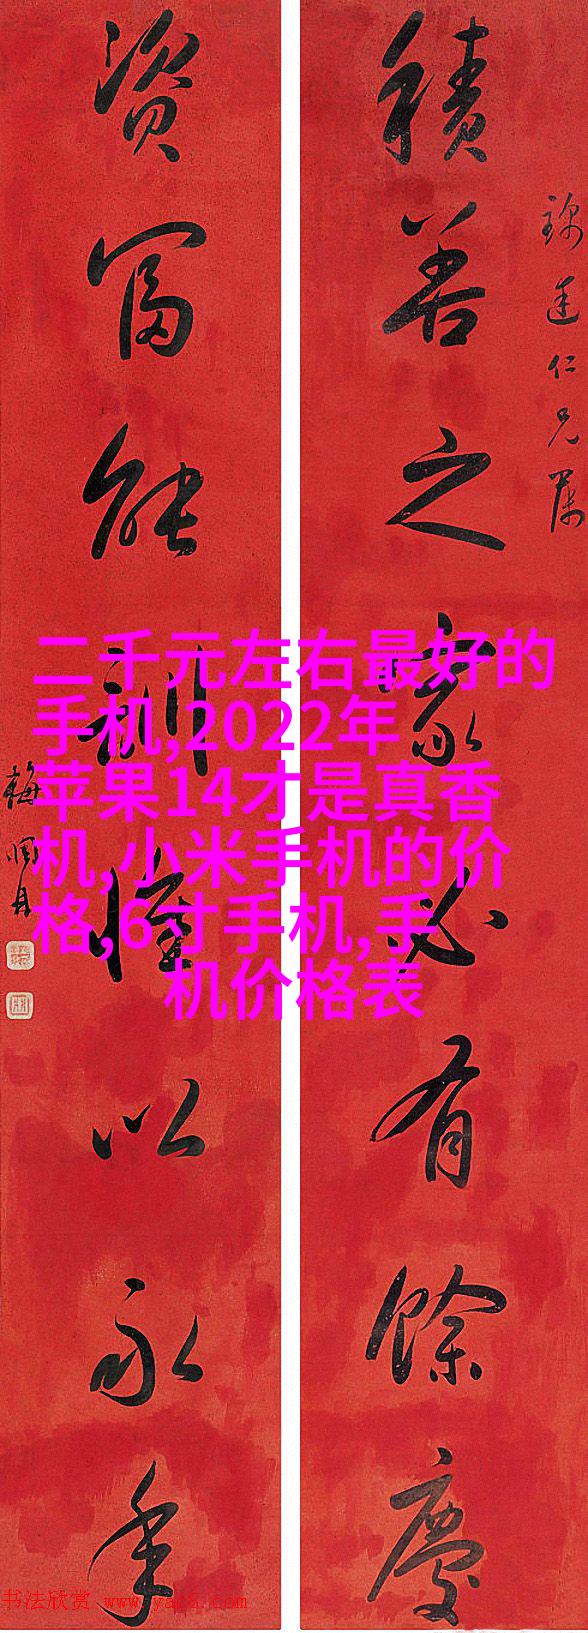 積善之家必有餘慶
錦達仁兄屬
資富能訓惟以永年
梅調鼎
二千元左右最好的
手机,2022年
苹果14才是真香
机,小米手机的价
格,6寸手机,手
机价格表
书法欣赏 www.yac8.com